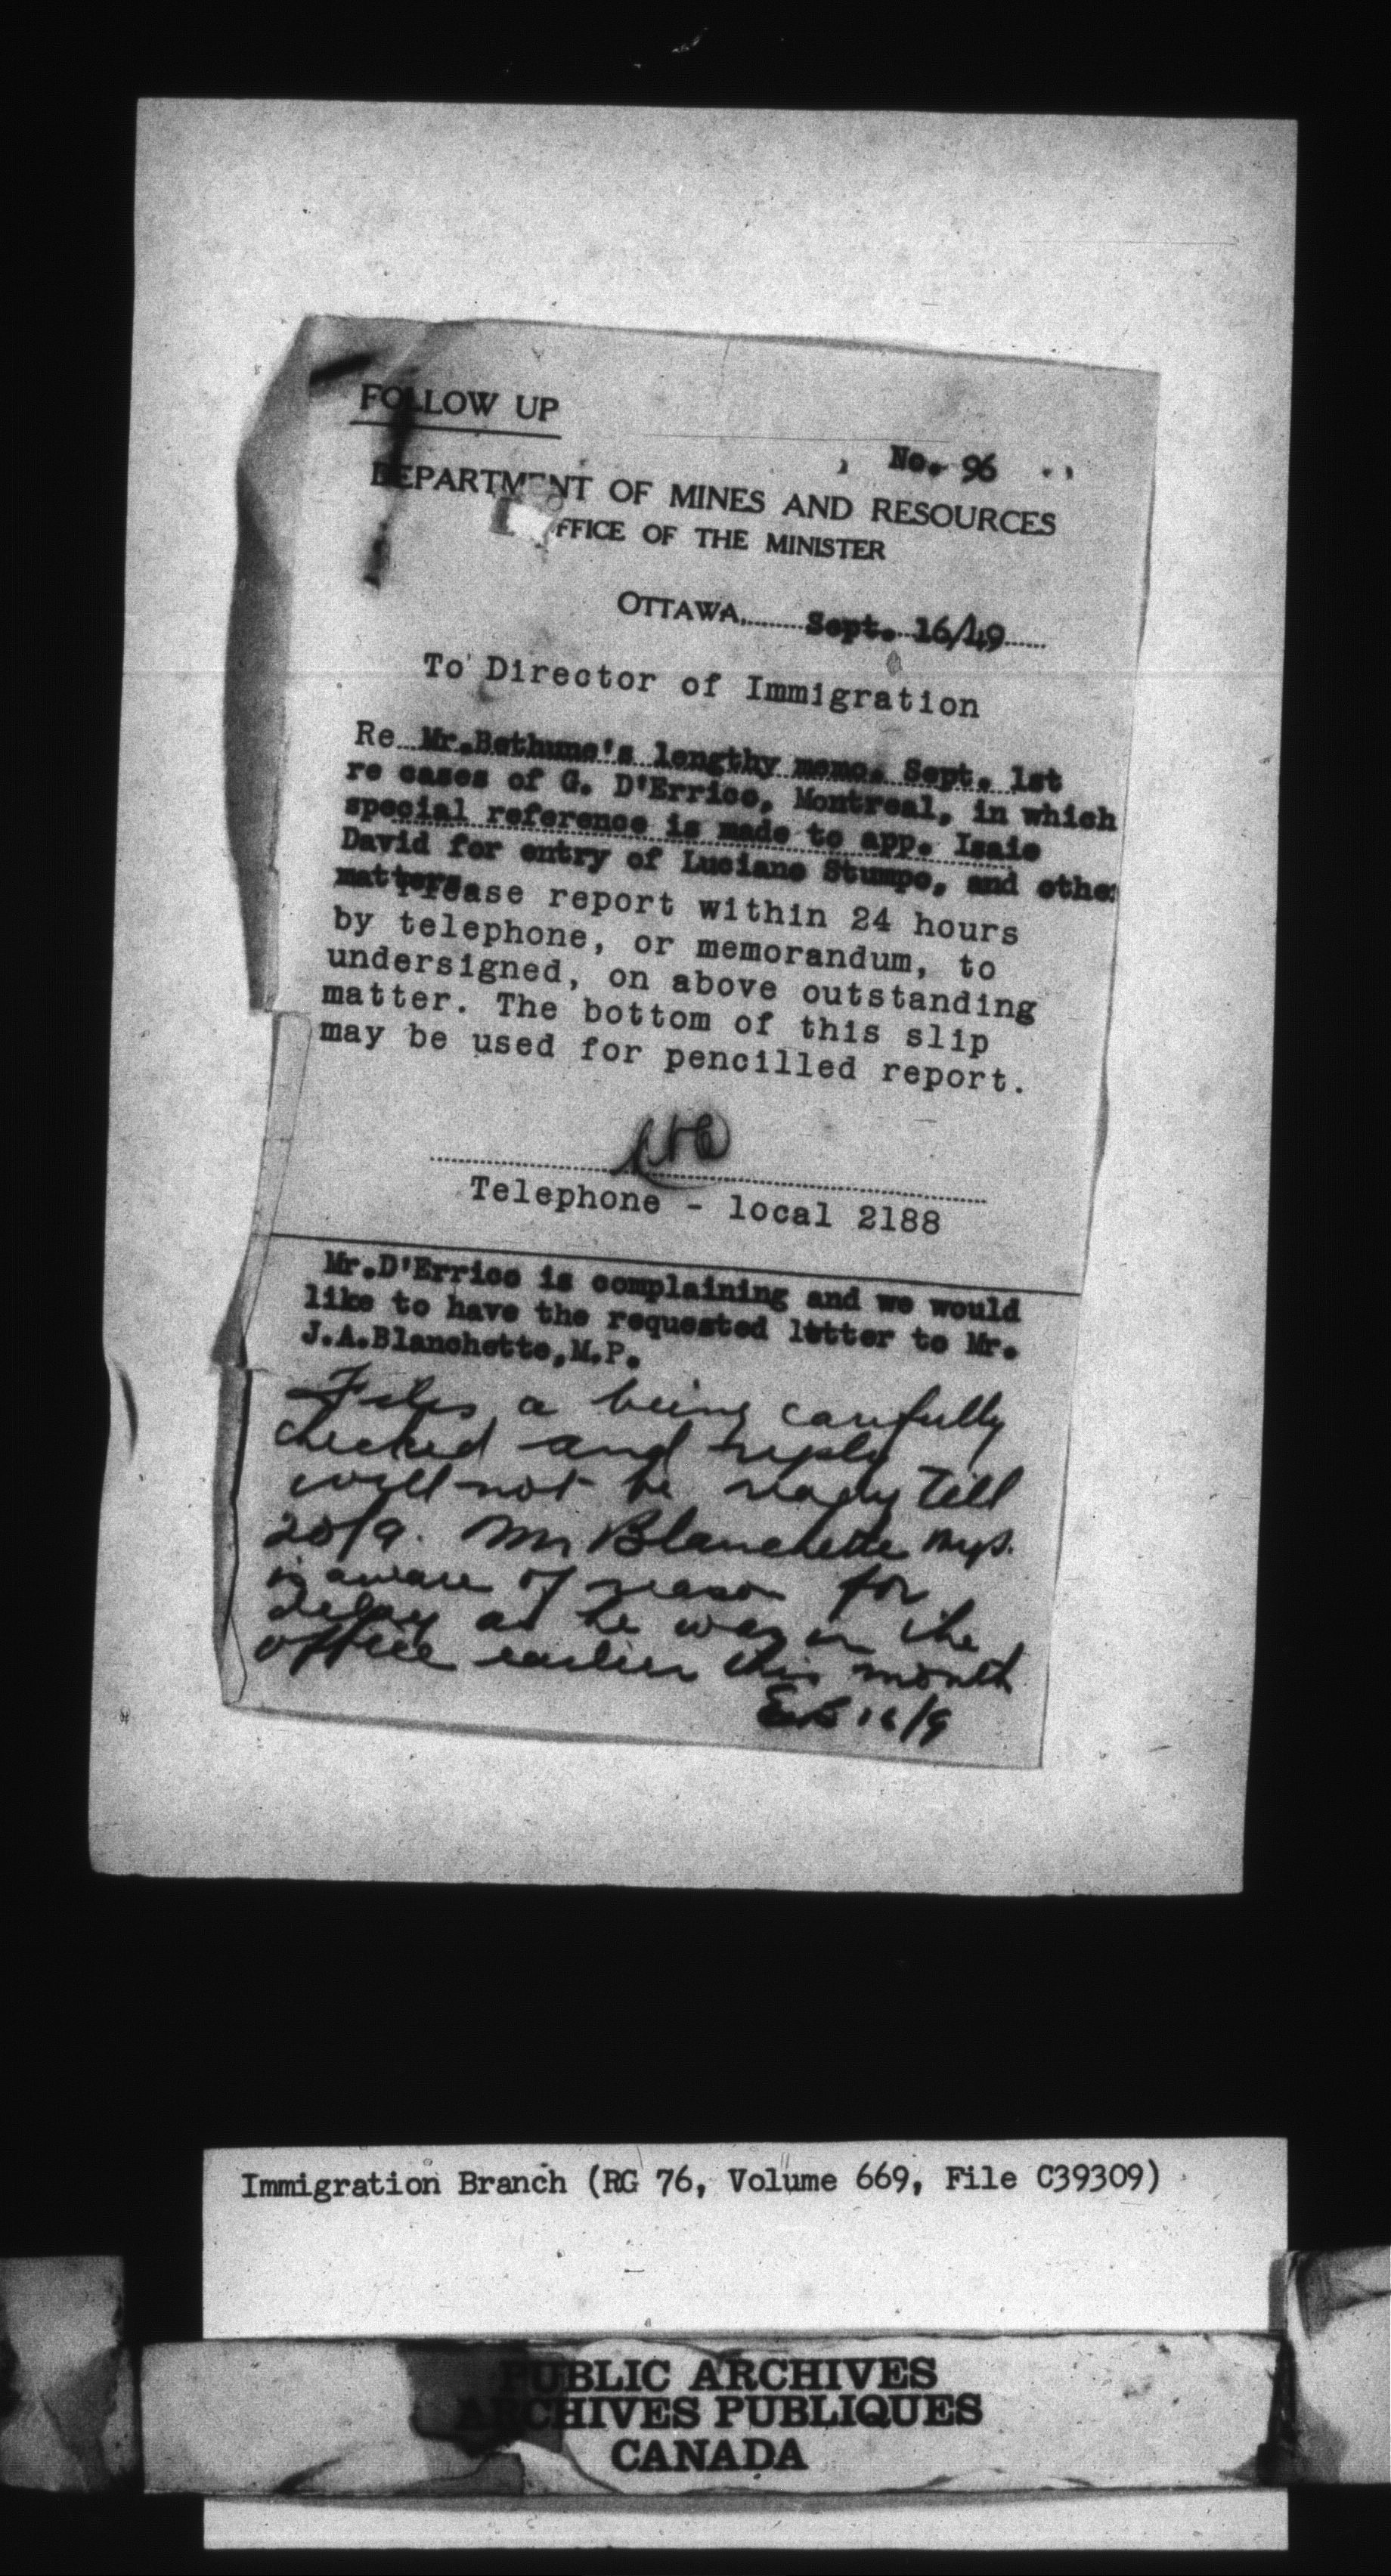 FOLLOW UP
No. 96
DEPARTMENT OF MINES AND RESOURCES
OFFICE OF THE MINISTER
OTTAWA, Sept. 16/49
To Director of Immigration
Re Mr.Bethune's lengthy memo. Sept. 1st
re cases of G. D'Errico, Montreal, in which
special reference is made to app. Isaie
David for entry of Luciano Stumpo, and other
matters.
Please report within 24 hours
by telephone, or memorandum, to
undersigned, on above outstanding
matter. The bottom of this slip
may be used for pencilled report.
Telephone - local 2188
Mr.D'Errico is complaining and we would
like to have the requested letter to Mr.
J.A.Blanchette,M.P.
Files a being carefully
checked and reply
will not be ready till
20/9. Mr Blanchette
is aware of reason for
delay as he was in the
office earlier this month
16/9
Immigration Branch (RG 76, Volume 669, File C39309)
PUBLIC ARCHIVES
ARCHIVES PUBLIQUES
CANADA